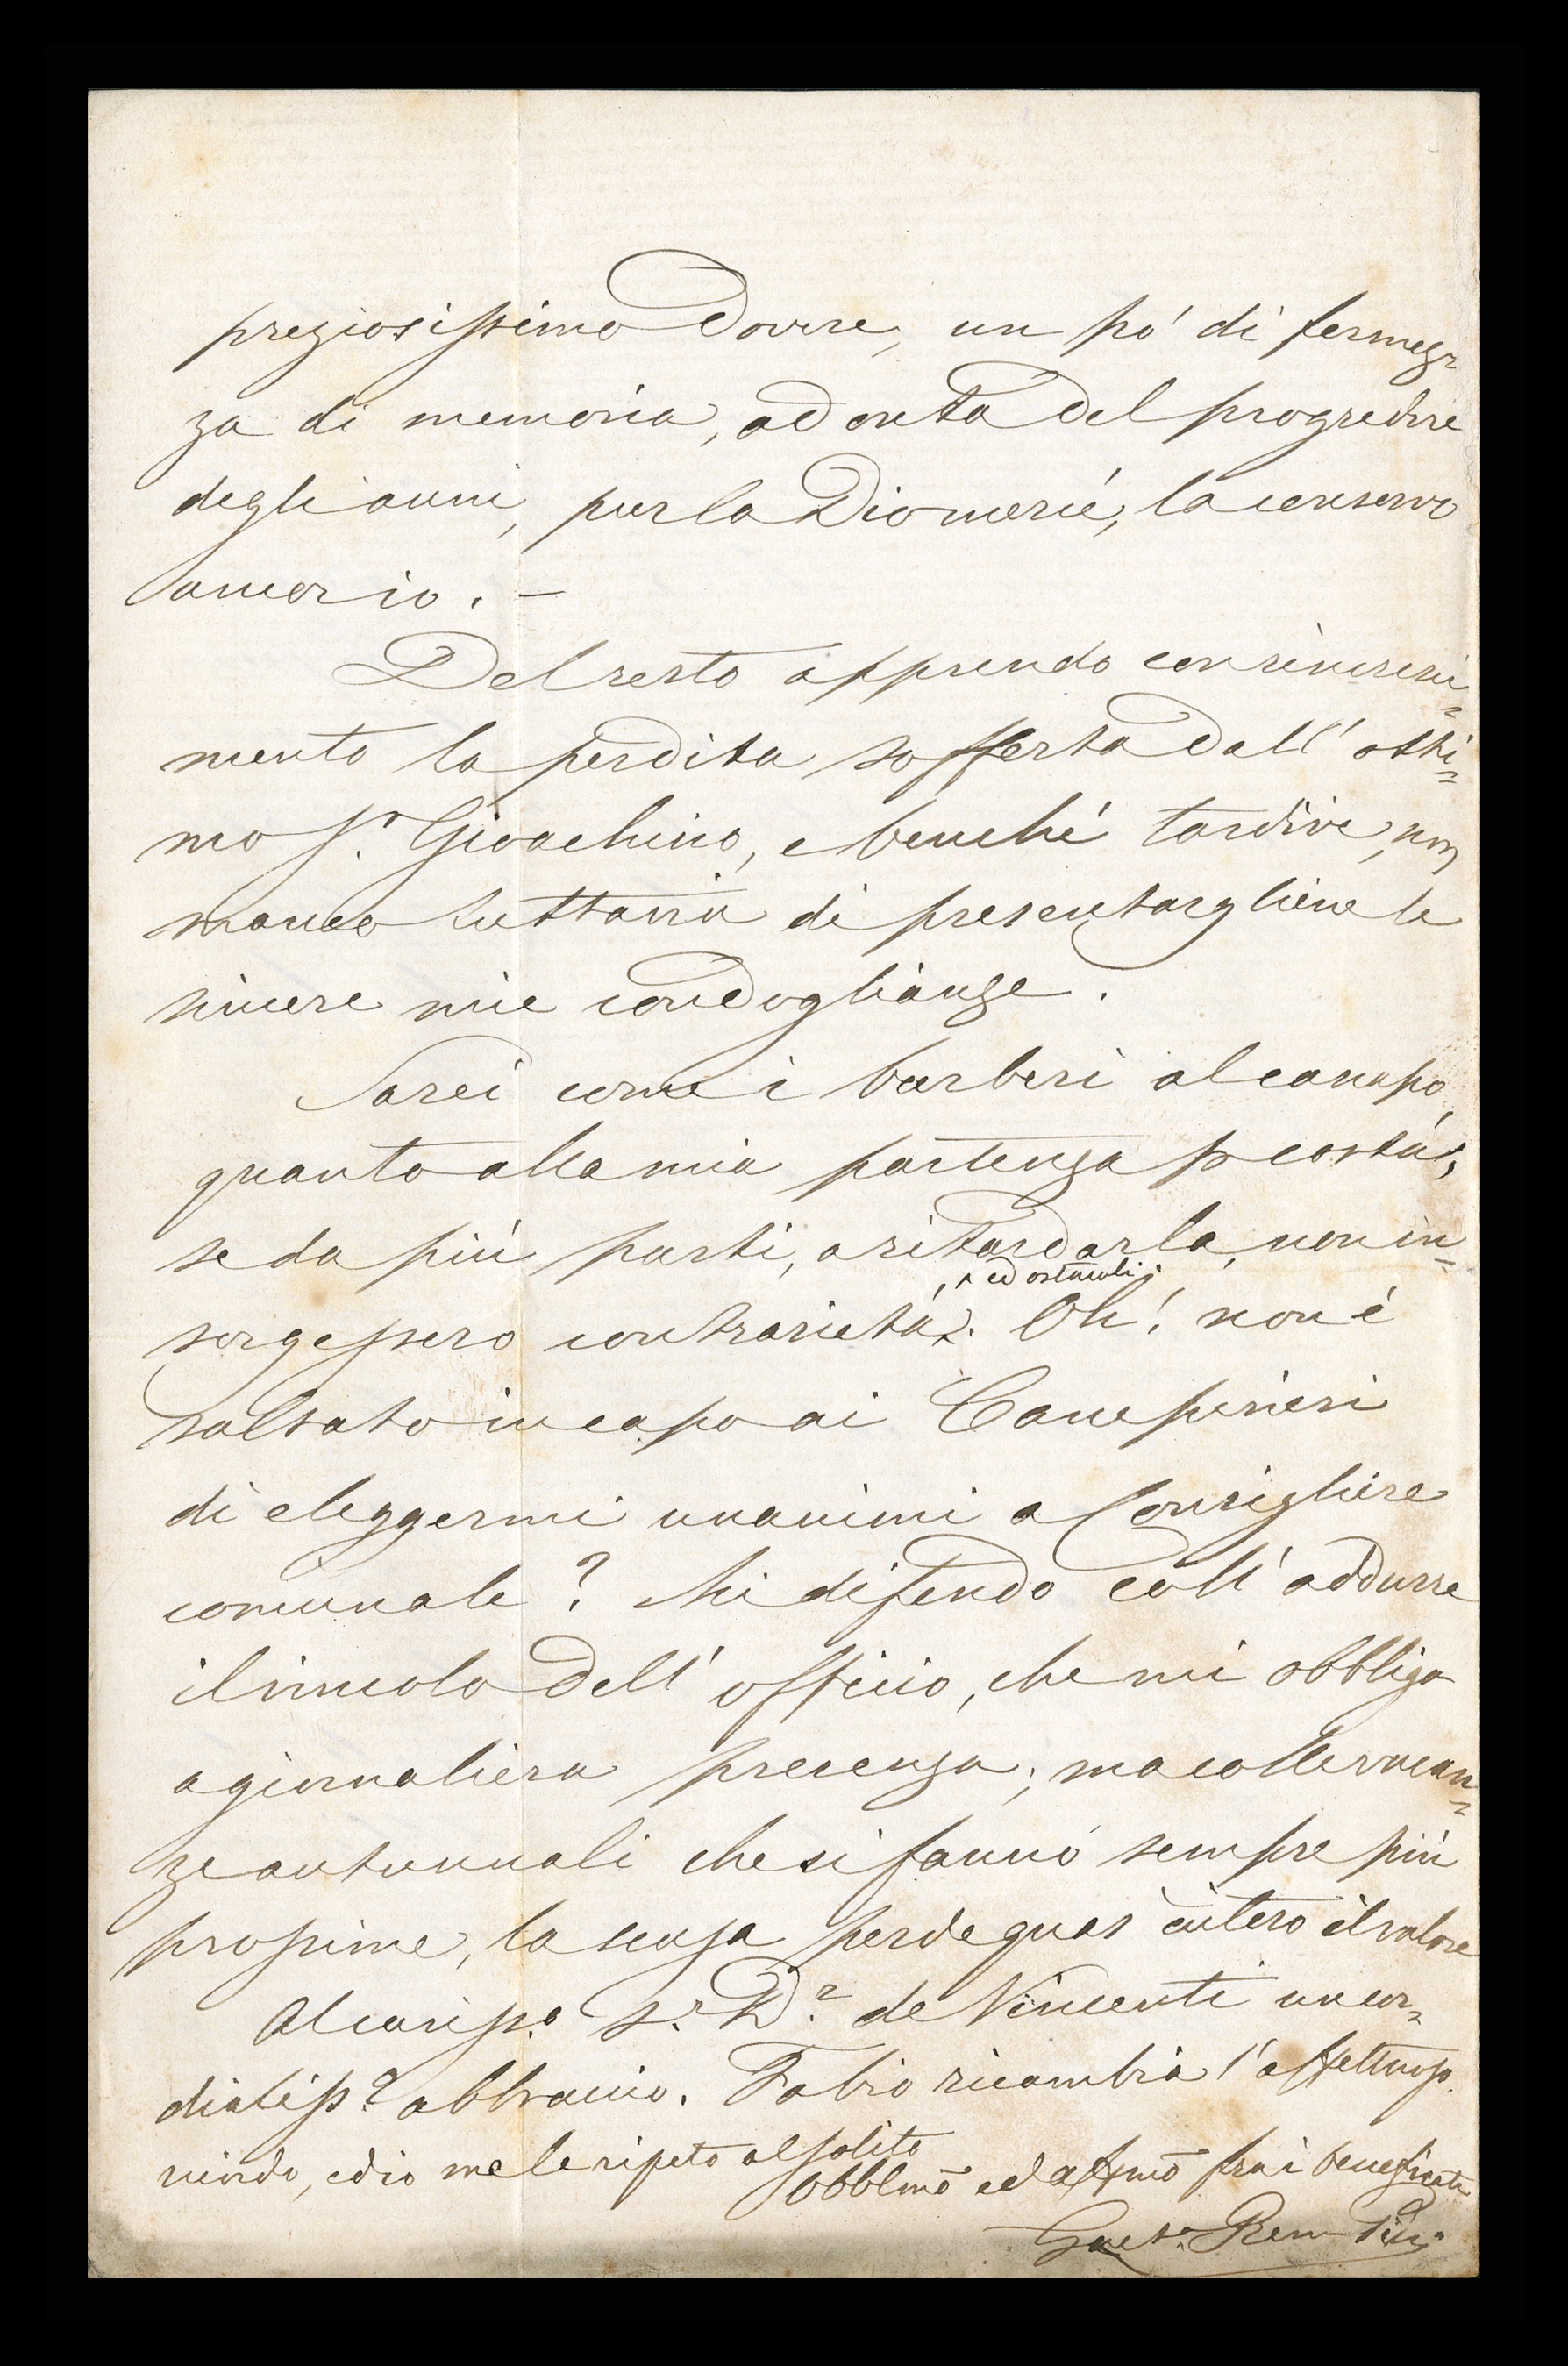 preziosissimo dovere, un pó di fermez=
za di memoria, ad onta del progredire
degli anni, per la Dio mercé, la conservo
ancor io. —
Del resto apprendo con rincresci=
mento la perdita sofferta dall' otti=
mo S.r Gioachino, e benché tardive, non
manco tuttavia di presentargliene le
sincere mie condoglianze.
Sarei come i barberi al canapo,
quanto alla mia partenza p costá,
se da piú parti, a ritardarla, non in=
sorgessero contrarietá, ed ostacoli. Oh! non é
saltato in capo ai Canepinesi
di eleggermi unanimi a Consigliere
comunale? Mi difendo coll' addurre
il vincolo dell' officio, che mi obbliga
a giornaliera presenza; ma colle vacan=
ze autunnali che si fanno sempre piú
prossime, la scusa perde quasi intero il valore
Al cariss.o S.r D.r de Vincenti un cor=
dialiss.o abbraccio. Fabio ricambia l'affettuoso
ricordo, ed io me le ripeto al solito
Obblmõ ed affmõ fra i beneficati
Gaet.o